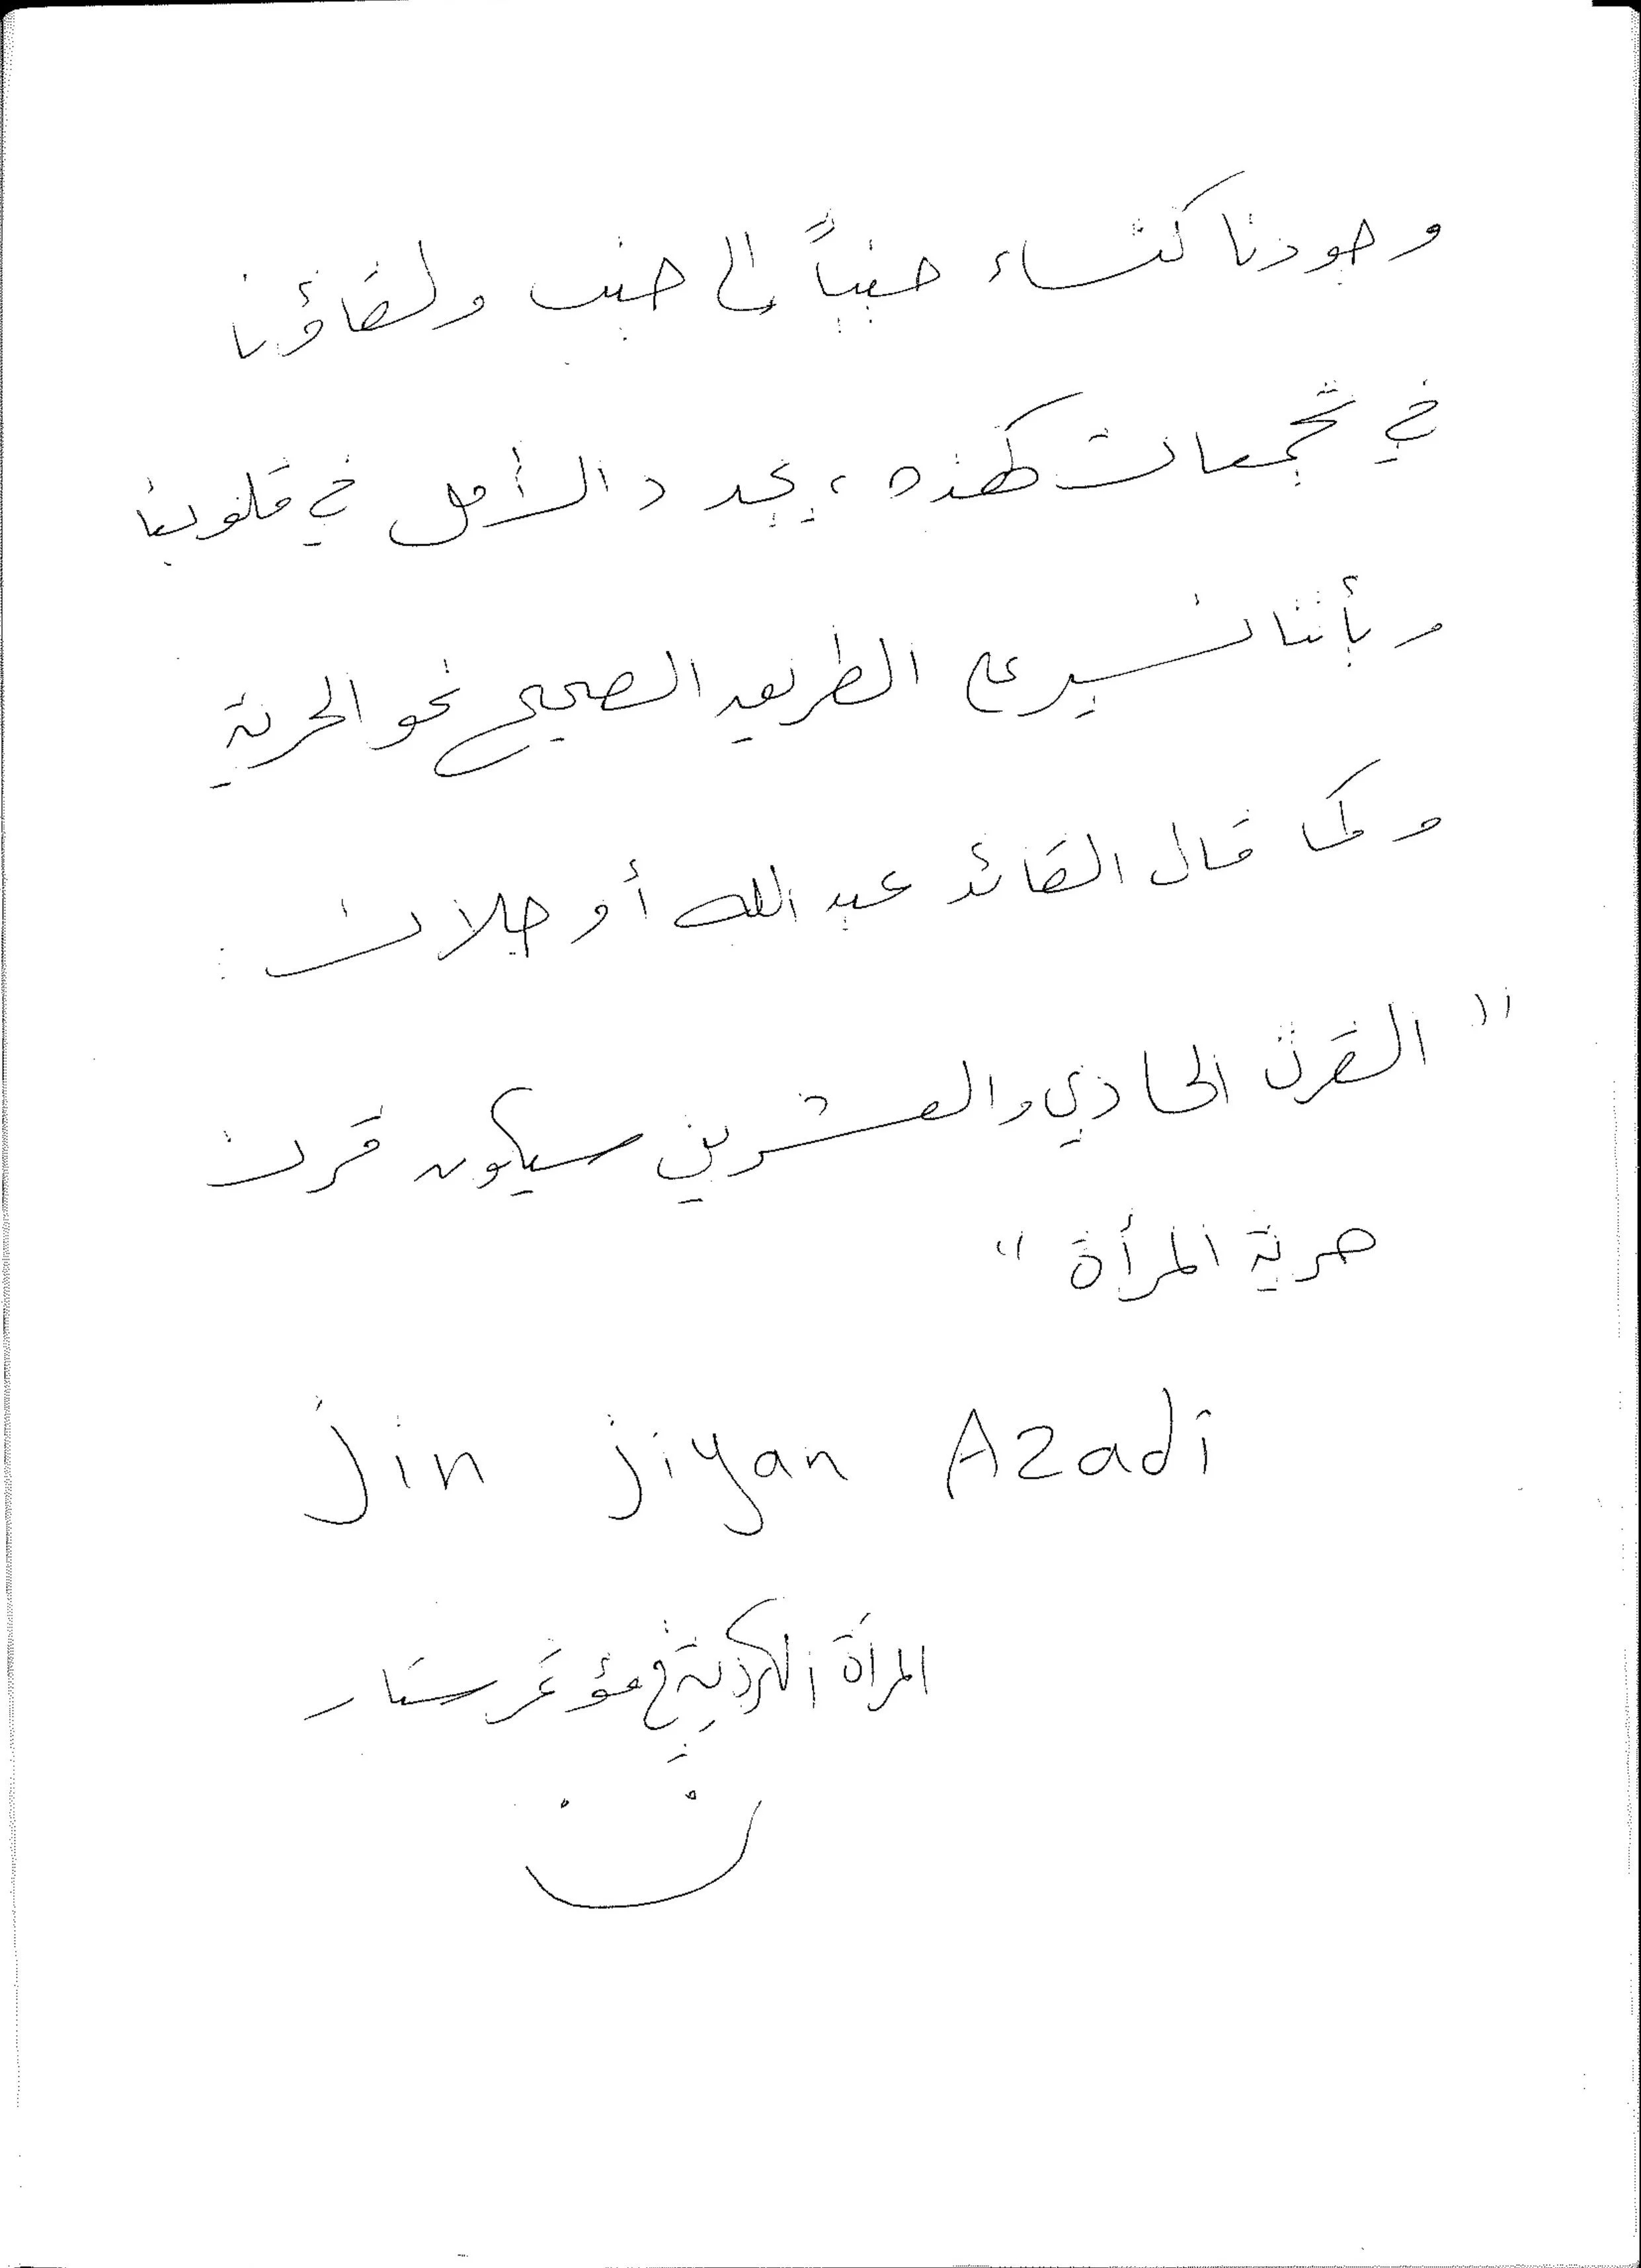 وجودنا كنساء جنباً إلى جنب ولقاؤنا
في تجمعات كهذه، يجدد الأمل في قلوبنا
وبأننا نسير على الطريق الصحيح نحو الحرية
وكما قال القائد عبد الله أوجلان :
"القرن الحادي والعشرين سيكون قرن
حرية المرأة"
Jin Jiyan Azadî
المرأة الكردية في مؤتمر ستار